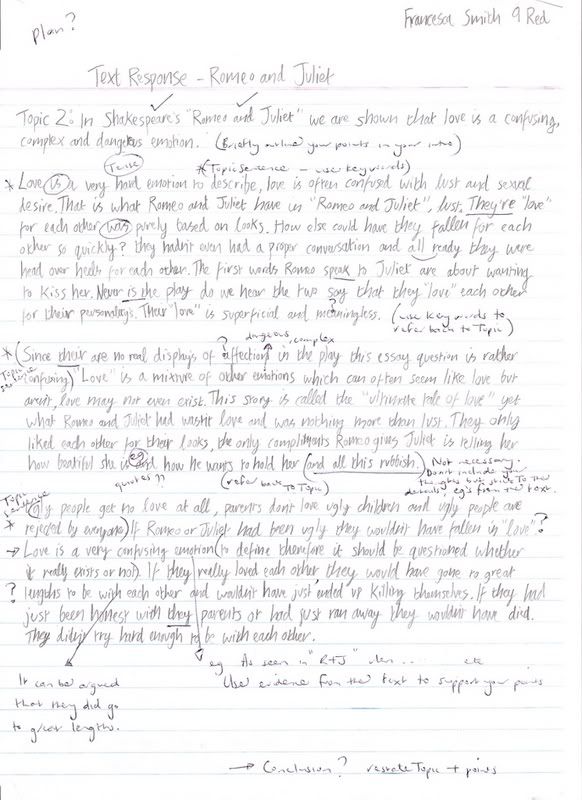 Francesca Smith 9 Red
plan?
Text Response - Romeo and Juliet
Topic 2: In Shakespeare's "Romeo and Juliet" we are shown that love is a confusing,
complex and dangerous emotion. (Briefly outline your points in your intro)
Tense
*(Topic Sentence - use key words)
* Love is a very hard emotion to describe, love is often confused with lust and sexual
desire. That is what Romeo and Juliet have in "Romeo and Juliet", lust. They're "love"
for each other was purely based on looks. How else could have they fallen for each
other so quickly? they hadn't even had a proper conversation and all ready they were
head over heels for each other. The first words Romeo speak to Juliet are about wanting
to kiss her. Never is the play do we hear the two say that they "love" each other
for their personality's. Their "love" is superficial and meaningless. (use key words to
refer back to Topic)
? dangerous, complex
* (Since their are no real displays of affection in the play this essay question is rather
Topic sentence
confusing) "Love" is a mixture of other emotions which can often seem like love but
arent, love may not even exist. This story is called the "ultimate tale of love" yet
what Romeo and Juliet had wasnt love and was nothing more than lust. They only
liked each other for their looks, the only compliments Romeo gives Juliet is telling her
how beatiful she is and how he wants to hold her (and all this rubbish).
eg.
quotes
(refer back to Topic)
Not necessary.
Don't include your
thoughts but stick to the
details, eg's from the text.
Topic sentence
* Ugly people get no love at all, parents dont love ugly children and ugly people are
rejected by everyone) If Romeo or Juliet had been ugly they wouldn't have fallen in "love"?
→ Love is a very confusing emotion (to define therefore it should be questioned whether
it really exists or not). If they really loved each other they would have gone to great
? lengths to be with each other and wouldn't have just ended up killing themselves. If they had
just been honest with they parents or had just ran away they wouldn't have died.
They didn't try hard enough to be with each other.
eg As seen in "R+J" when ..... etc
Use evidence from the text to support your points
It can be argued
that they did go
to great lengths.
→ Conclusion? restate Topic + points